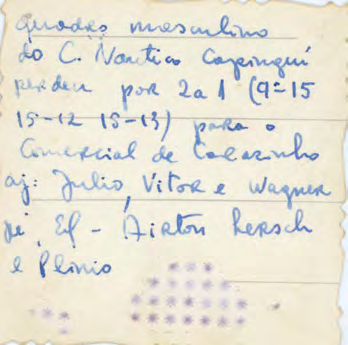 quadro masculino
do C. Nautico Capingui
perdeu por 2 a 1 (9=15
15-12 15-13) para o
Comercial de Carazinho
aj: Julio, Vitor e Wagner
El - Airton Lersch
e Plinio